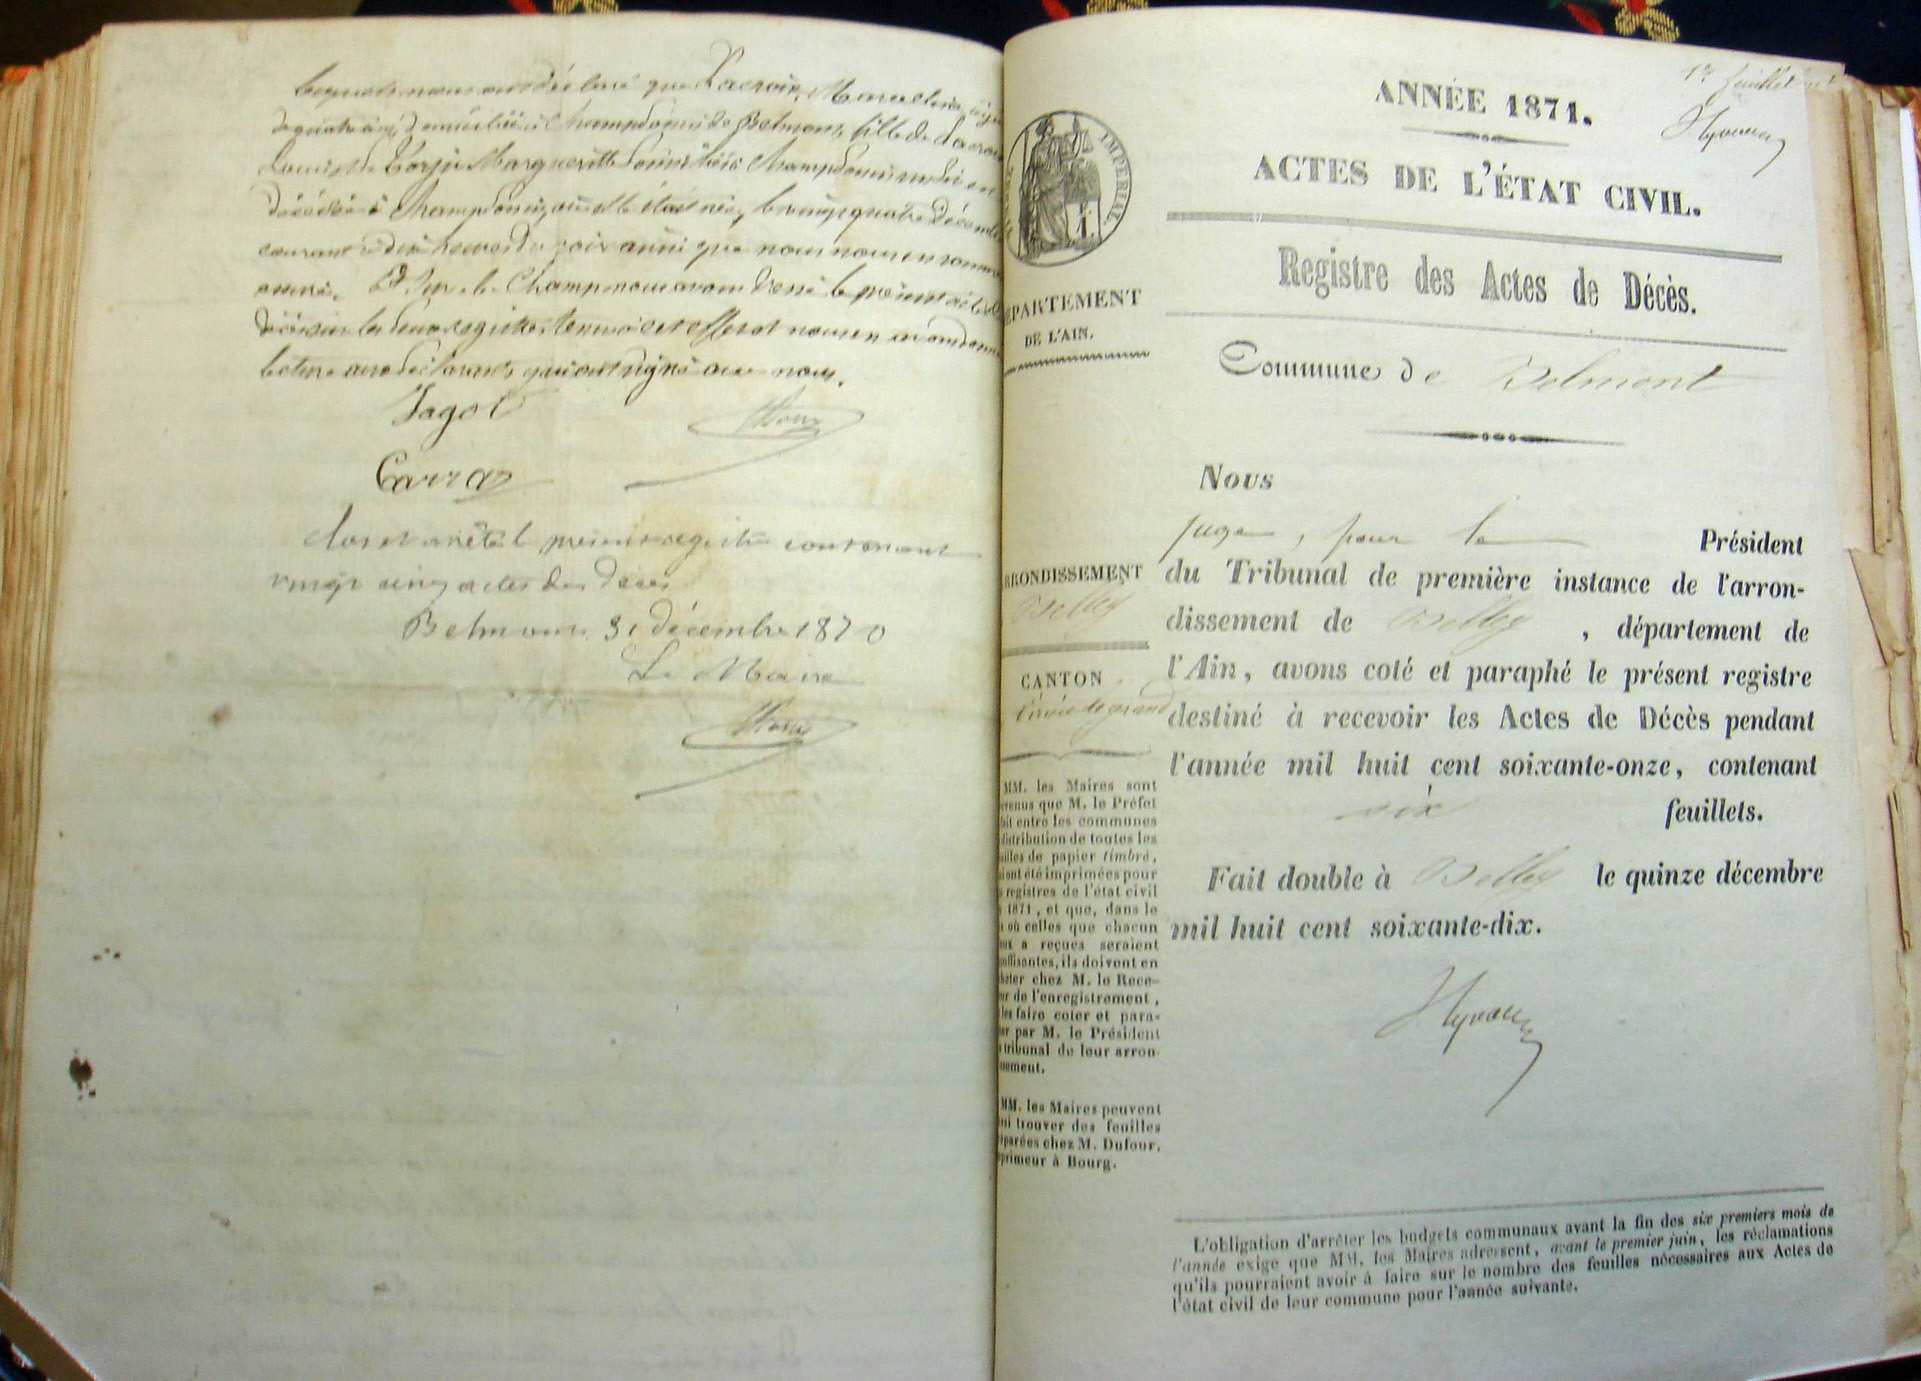 lesquels nous ont déclaré que Lacroix, Marceline âgée
de quatre ans, domiciliée à Champdonin de Belmont, fille de Lacroix
Louis et de Marguerite domiciliés à Champdonin
décédée à Champdonin, où elle était née, le vingt quatre décembre
courant à dix heures du soir ainsi que nous nous en sommes
assuré. Et sur le Champ nous avons dressé le présent acte de
décès sur les deux registres tenus à cet effet et nous en avons donné
lecture aux déclarants, qui ont signé avec nous.
Jagot
Carraz
Clos et arrêté le présent registre contenant
vingt cinq actes de décès
Belmont 31 décembre 1870
Le Maire
1er feuillet
Hyvau
ANNÉE 1871.
ACTES DE L'ÉTAT CIVIL.
Registre des Actes de Décès.
IMPÉRIAL
PARTEMENT
DE L'AIN.
Commune de Belmont
Nous
juge, pour le Président
du Tribunal de première instance de l'arron-
dissement de Belley, département de
l'Ain, avons coté et paraphé le présent registre
destiné à recevoir les Actes de Décès pendant
l'année mil huit cent soixante-onze, contenant
six feuillets.
Fait double à Belley le quinze décembre
mil huit cent soixante-dix.
Hyvau
RRONDISSEMENT
Belley
CANTON
Virieu le grand
MM. les Maires sont
venus que M. le Préfet
ait entre les communes
distribution de toutes les
uilles de papier timbré,
aient été imprimées pour
s registres de l'état civil
1871, et que, dans le
où celles que chacun
eux a reçues seraient
uffisantes, ils doivent en
heter chez M. le Rece-
ur de l'enregistrement,
les faire coter et para-
er par M. le Président
tribunal de leur arron-
sement.
MM. les Maires peuvent
ssi trouver des feuilles
éparées chez M. Dufour,
primeur à Bourg.
L'obligation d'arrêter les budgets communaux avant la fin des six premiers mois de
l'année exige que MM. les Maires adressent, avant le premier juin, les réclamations
qu'ils pourraient avoir à faire sur le nombre des feuilles nécessaires aux Actes de
l'état civil de leur commune pour l'année suivante.